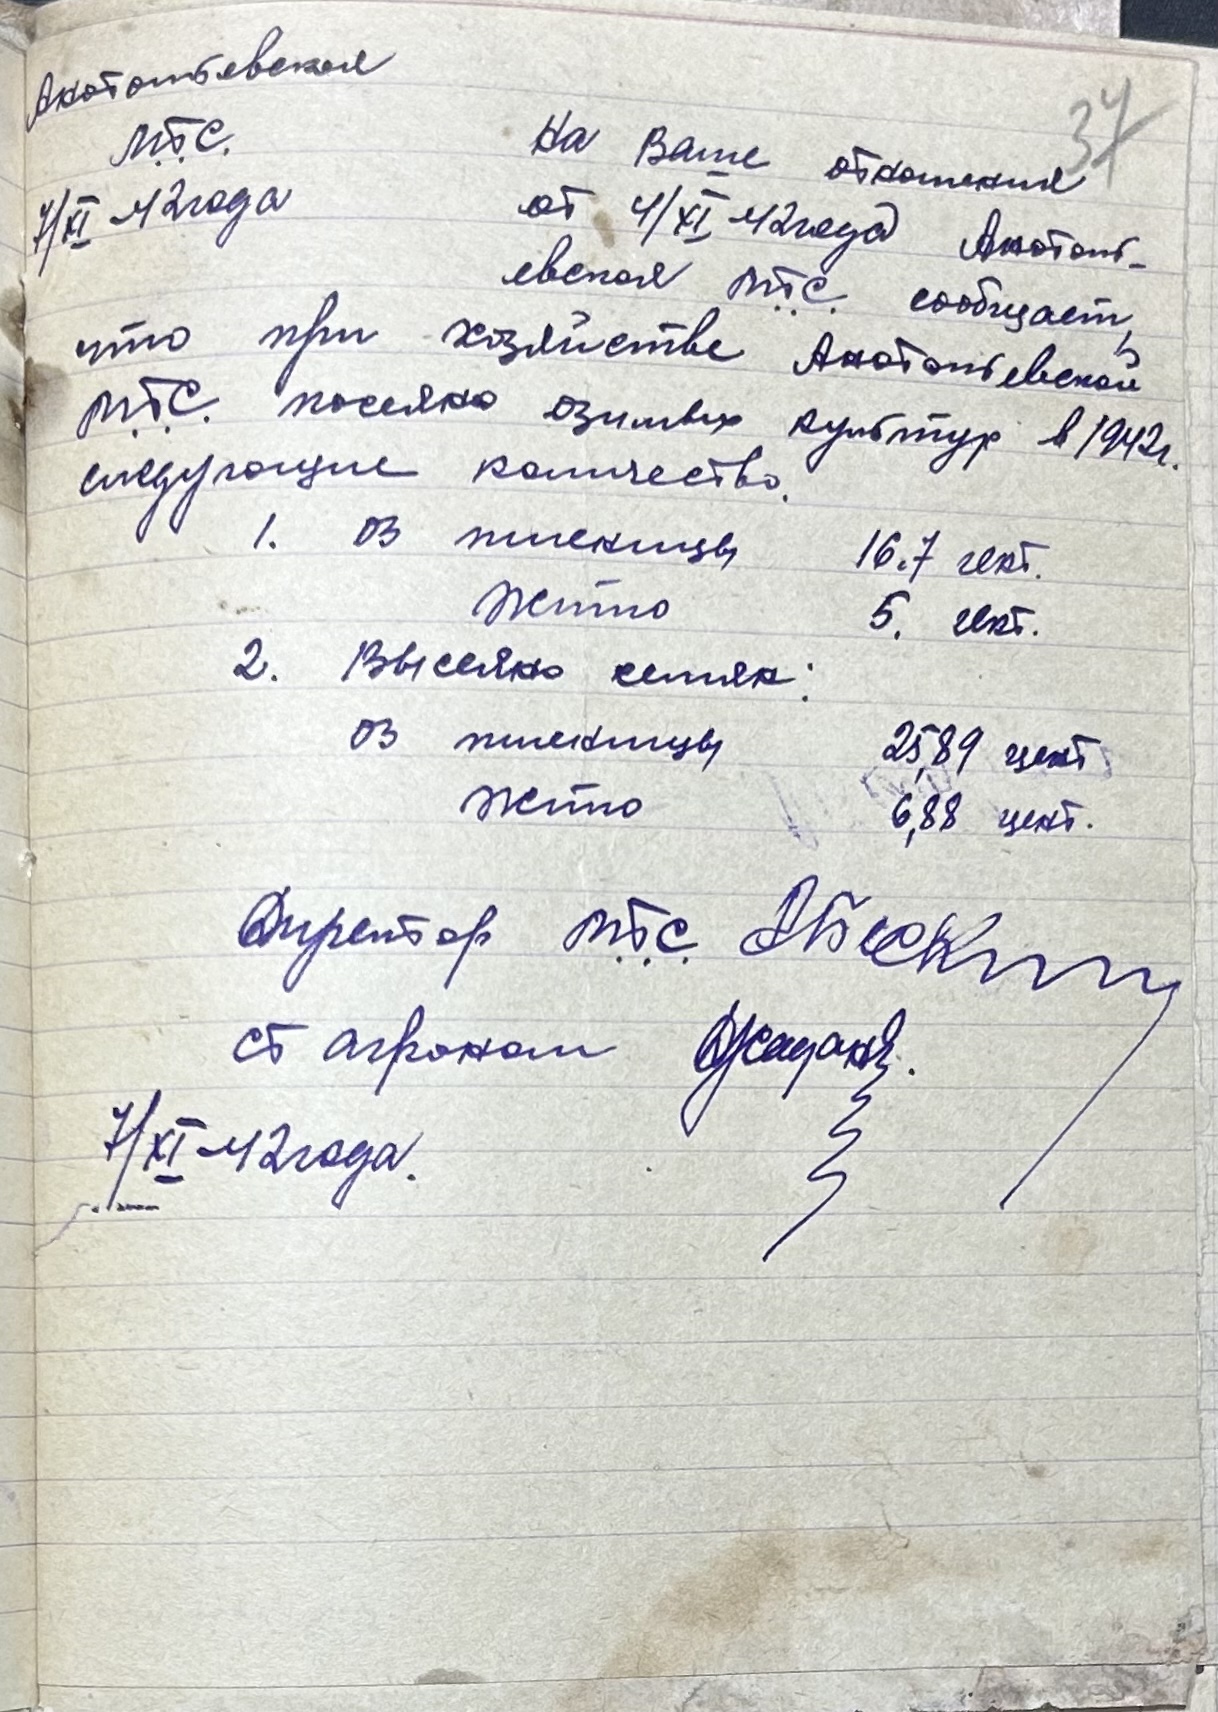 Анатольевская
М.Т.С.
7/XI-42года
37
На Ваше отношения
от 4/XI-42года Анатоль-
евская М.Т.С. сообщает,
что при хозяйстве Анатольевской
М.Т.С. посеяно озимых культур в 1942г.
следующие количество.
1. оз пшеницы 16.7 гект.
Жито 5. гект.
2. Высеяно семян:
оз пшеницы 25,89 цент
Жито 6,88 цент.
Директор М.Т.С.
ст агроном
7/XI-42года.